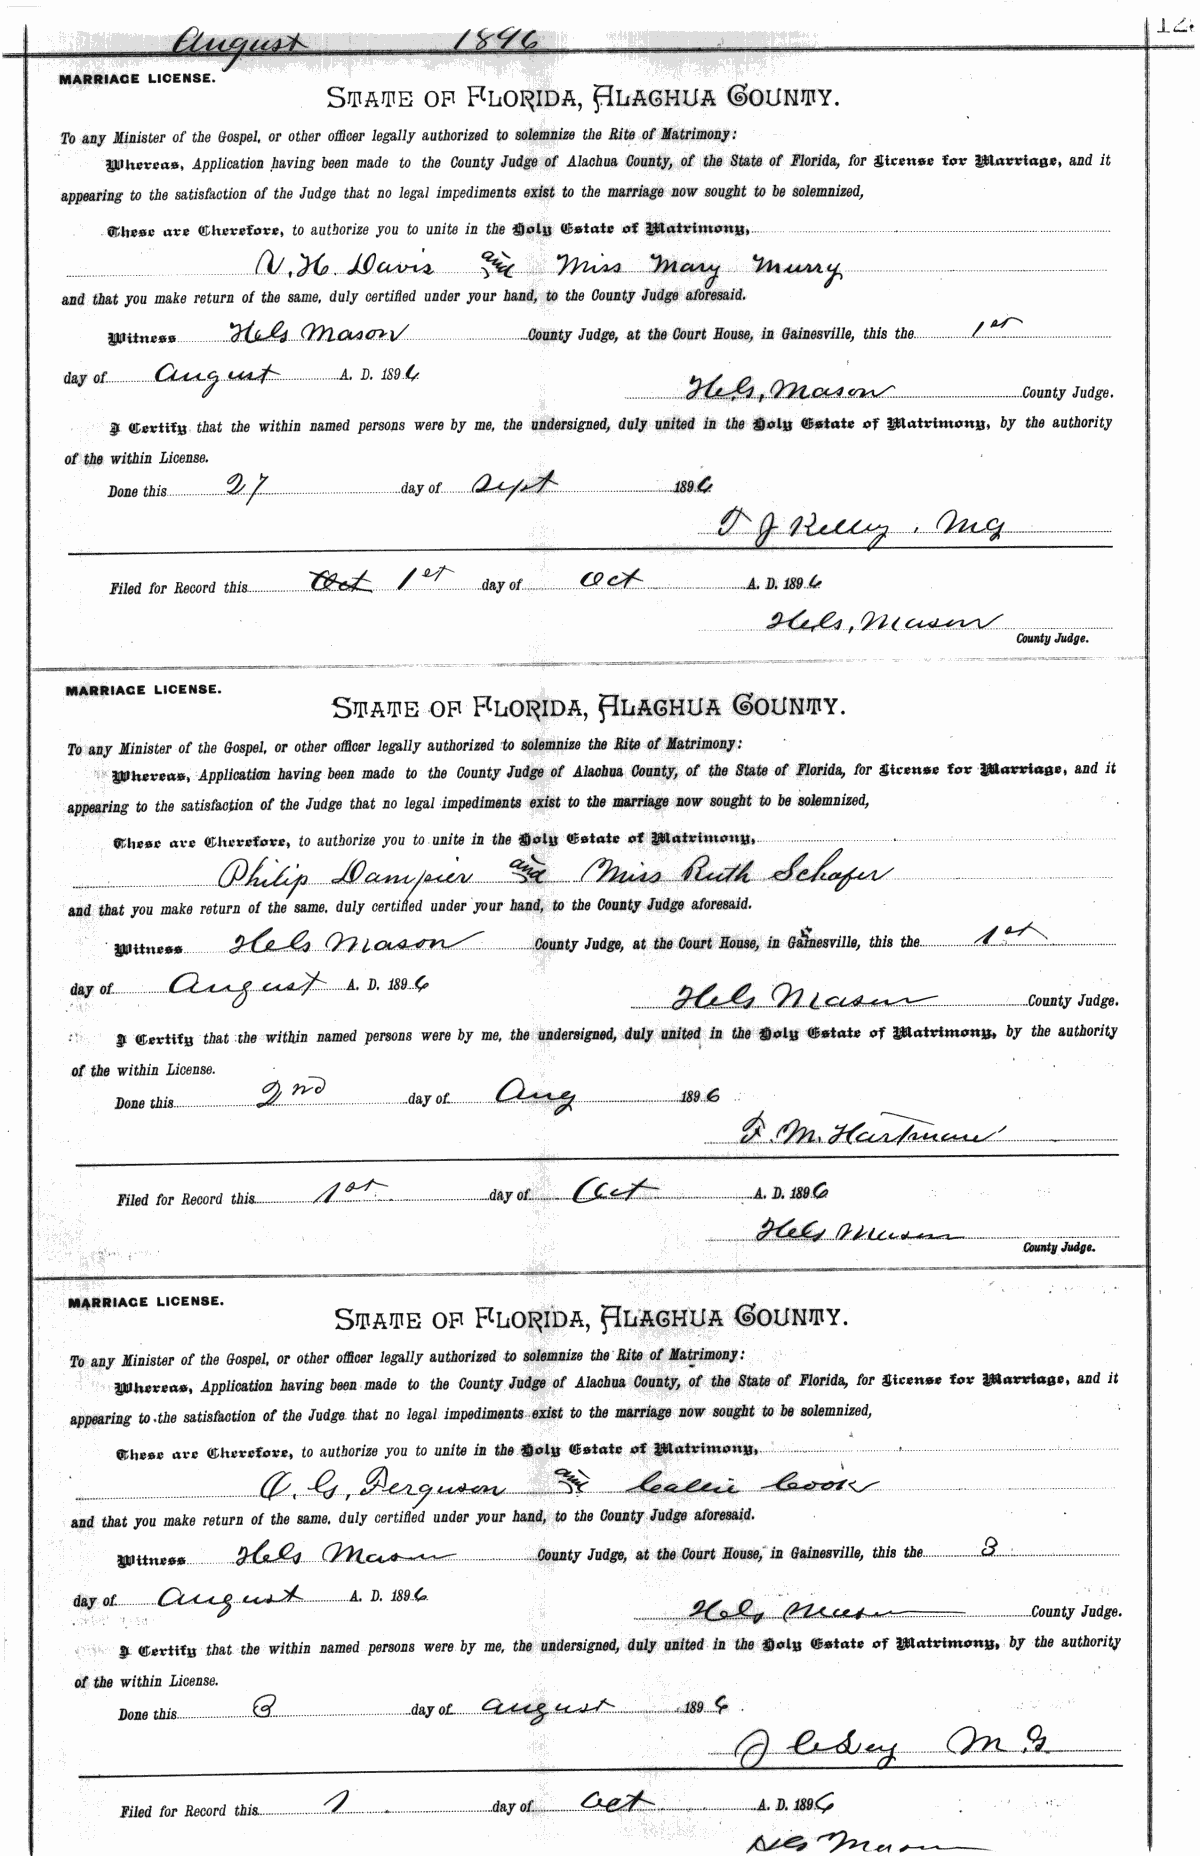 August 1896
MARRIAGE LICENSE.
STATE OF FLORIDA, ALACHUA COUNTY.
To any Minister of the Gospel, or other officer legally authorized to solemnize the Rite of Matrimony:
Whereas, Application having been made to the County Judge of Alachua County, of the State of Florida, for License for Marriage, and it
appearing to the satisfaction of the Judge that no legal impediments exist to the marriage now sought to be solemnized,
These are Therefore, to authorize you to unite in the Holy Estate of Matrimony,
V. H. Davis and Miss Mary Murry
and that you make return of the same, duly certified under your hand, to the County Judge aforesaid.
Witness Hels Mason County Judge, at the Court House, in Gainesville, this the 1st
day of August A. D. 1896
Hels, Mason County Judge.
I Certify that the within named persons were by me, the undersigned, duly united in the Holy Estate of Matrimony, by the authority
of the within License.
Done this 27 day of Sept 1896
T J Kelley. MG
Filed for Record this Oct 1st day of Oct A. D. 1896
Hels, Mason
County Judge.
MARRIAGE LICENSE.
STATE OF FLORIDA, ALACHUA COUNTY.
To any Minister of the Gospel, or other officer legally authorized to solemnize the Rite of Matrimony:
Whereas, Application having been made to the County Judge of Alachua County, of the State of Florida, for License for Marriage, and it
appearing to the satisfaction of the Judge that no legal impediments exist to the marriage now sought to be solemnized,
These are Therefore, to authorize you to unite in the Holy Estate of Matrimony,
Philip Dampier and Miss Ruth Schafer
and that you make return of the same, duly certified under your hand, to the County Judge aforesaid.
Witness Hels Mason County Judge, at the Court House, in Gainesville, this the 1st
day of August A. D. 1896
Hels Mason County Judge.
I Certify that the within named persons were by me, the undersigned, duly united in the Holy Estate of Matrimony, by the authority
of the within License.
Done this 2nd day of Aug 1896
F. M. Hartman
Filed for Record this 1st day of Oct A. D. 1896
Hels Mason
County Judge.
MARRIAGE LICENSE.
STATE OF FLORIDA, ALACHUA COUNTY.
To any Minister of the Gospel, or other officer legally authorized to solemnize the Rite of Matrimony:
Whereas, Application having been made to the County Judge of Alachua County, of the State of Florida, for License for Marriage, and it
appearing to the satisfaction of the Judge that no legal impediments exist to the marriage now sought to be solemnized,
These are Therefore, to authorize you to unite in the Holy Estate of Matrimony,
G. Ferguson and Callie Cook
and that you make return of the same, duly certified under your hand, to the County Judge aforesaid.
Witness Hels Mason County Judge, at the Court House, in Gainesville, this the 3
day of August A. D. 1896
Hels Mason County Judge.
I Certify that the within named persons were by me, the undersigned, duly united in the Holy Estate of Matrimony, by the authority
of the within License.
Done this 3 day of August 1896
J M G
Filed for Record this 1 day of Oct A. D. 1896
Hels Mason